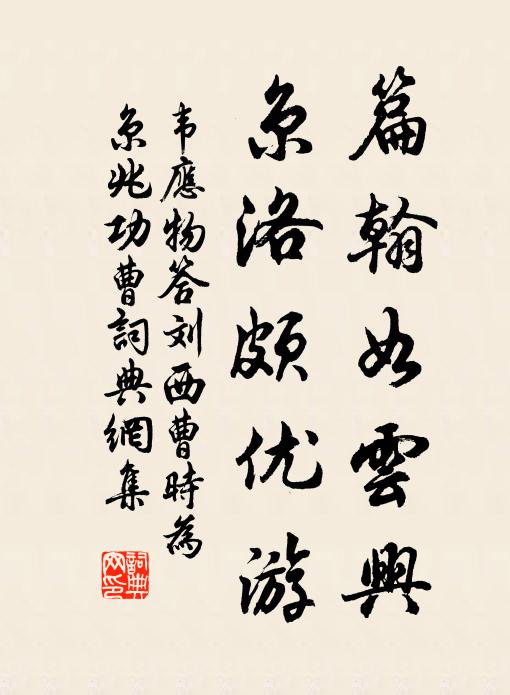 篇翰如雲興
京洛頗优游
韦應物答刘西曹時為
京兆功曹詞典網集
詞典
网印